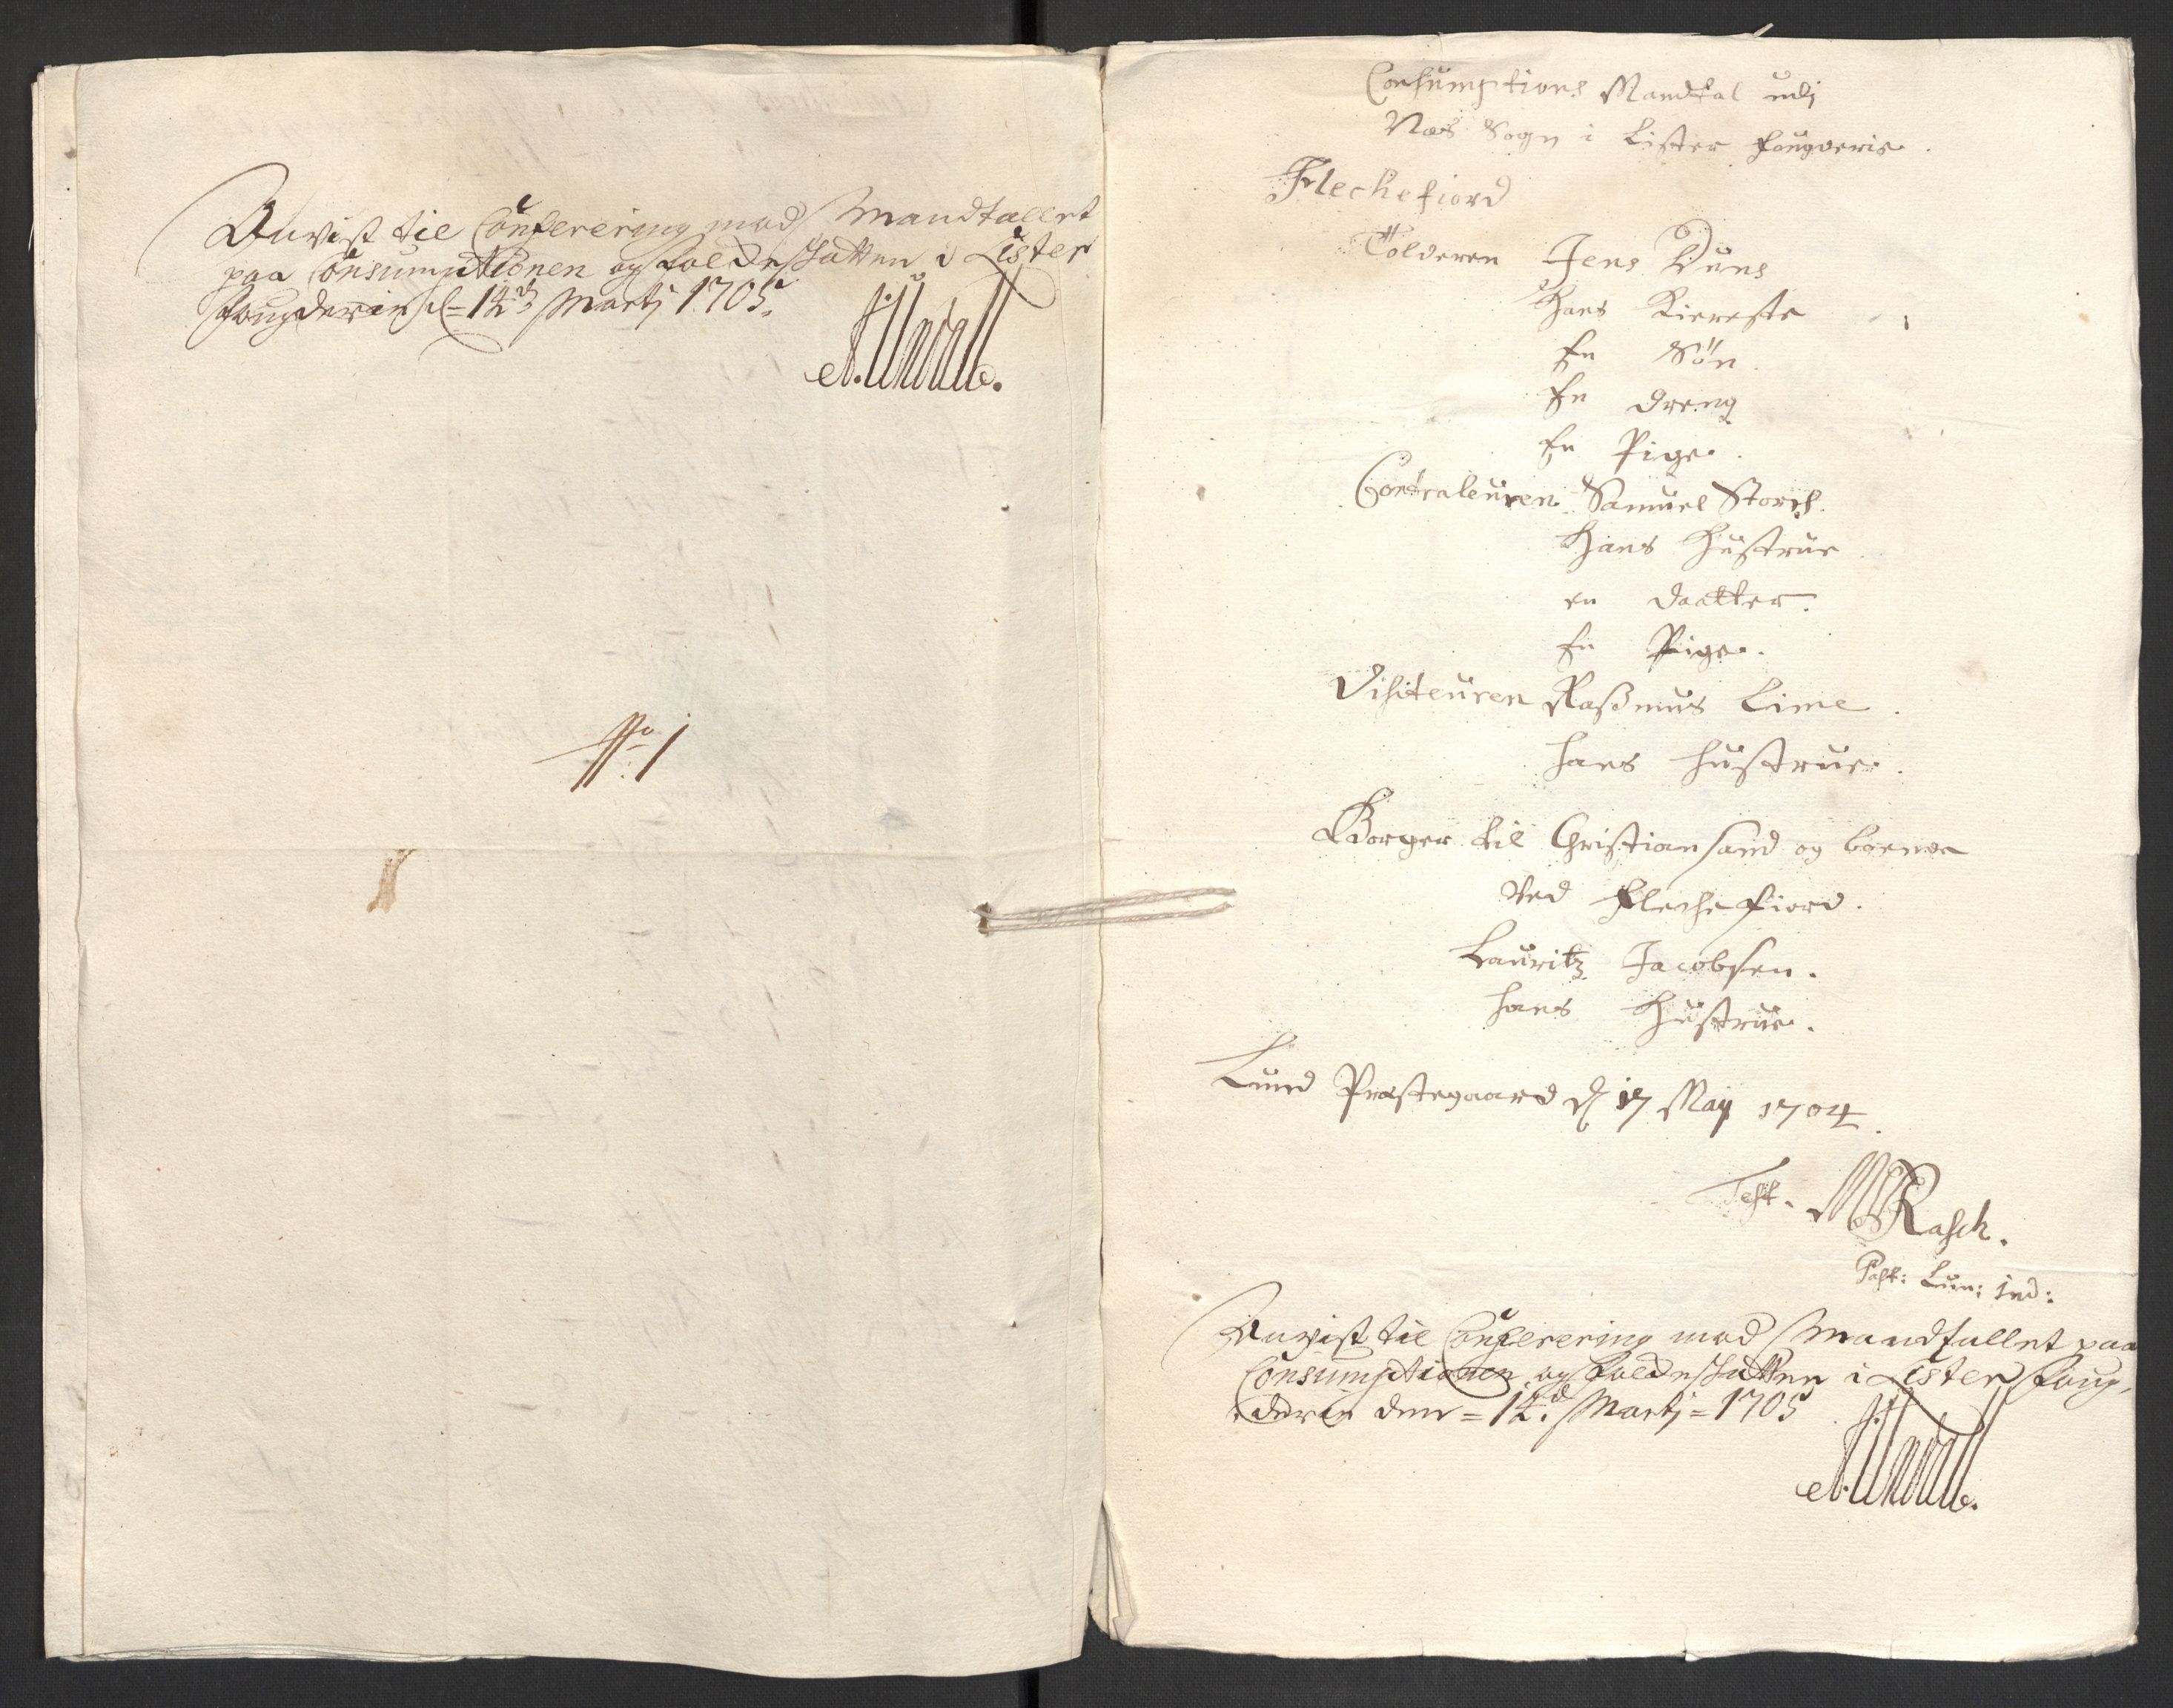 Anvist til Confrering mod Mandtallet
paa Consumptionen og folcheskatten i Lister
fougderie d= 14d Martj 1705.
No 1
Consumptions Mandtal udj
Næs Sogn i Lister fougderie.
Flechefiord
Tolderen Jens Duns
Hans Kiereste
En Søn.
En dreng
En Pige.
Contraleuren Samuel Storch.
Hans Hustrue
en daatter.
En Pige.
Visiteuren Rasmus Lime
hans hustrue.
Borger til Christiansand og boende
Ved Flechefiord.
Lauritz Jacobsen.
hans Hustrue.
Lund Præstegaard d 17 Maij 1704.
Test. MRasch.
Past: Lun: ind:
Anvist til Confrering mod Mandtallet paa
Consumptionen og folcheskatten i Lister foug-
derie den = 14.d Martj = 1705